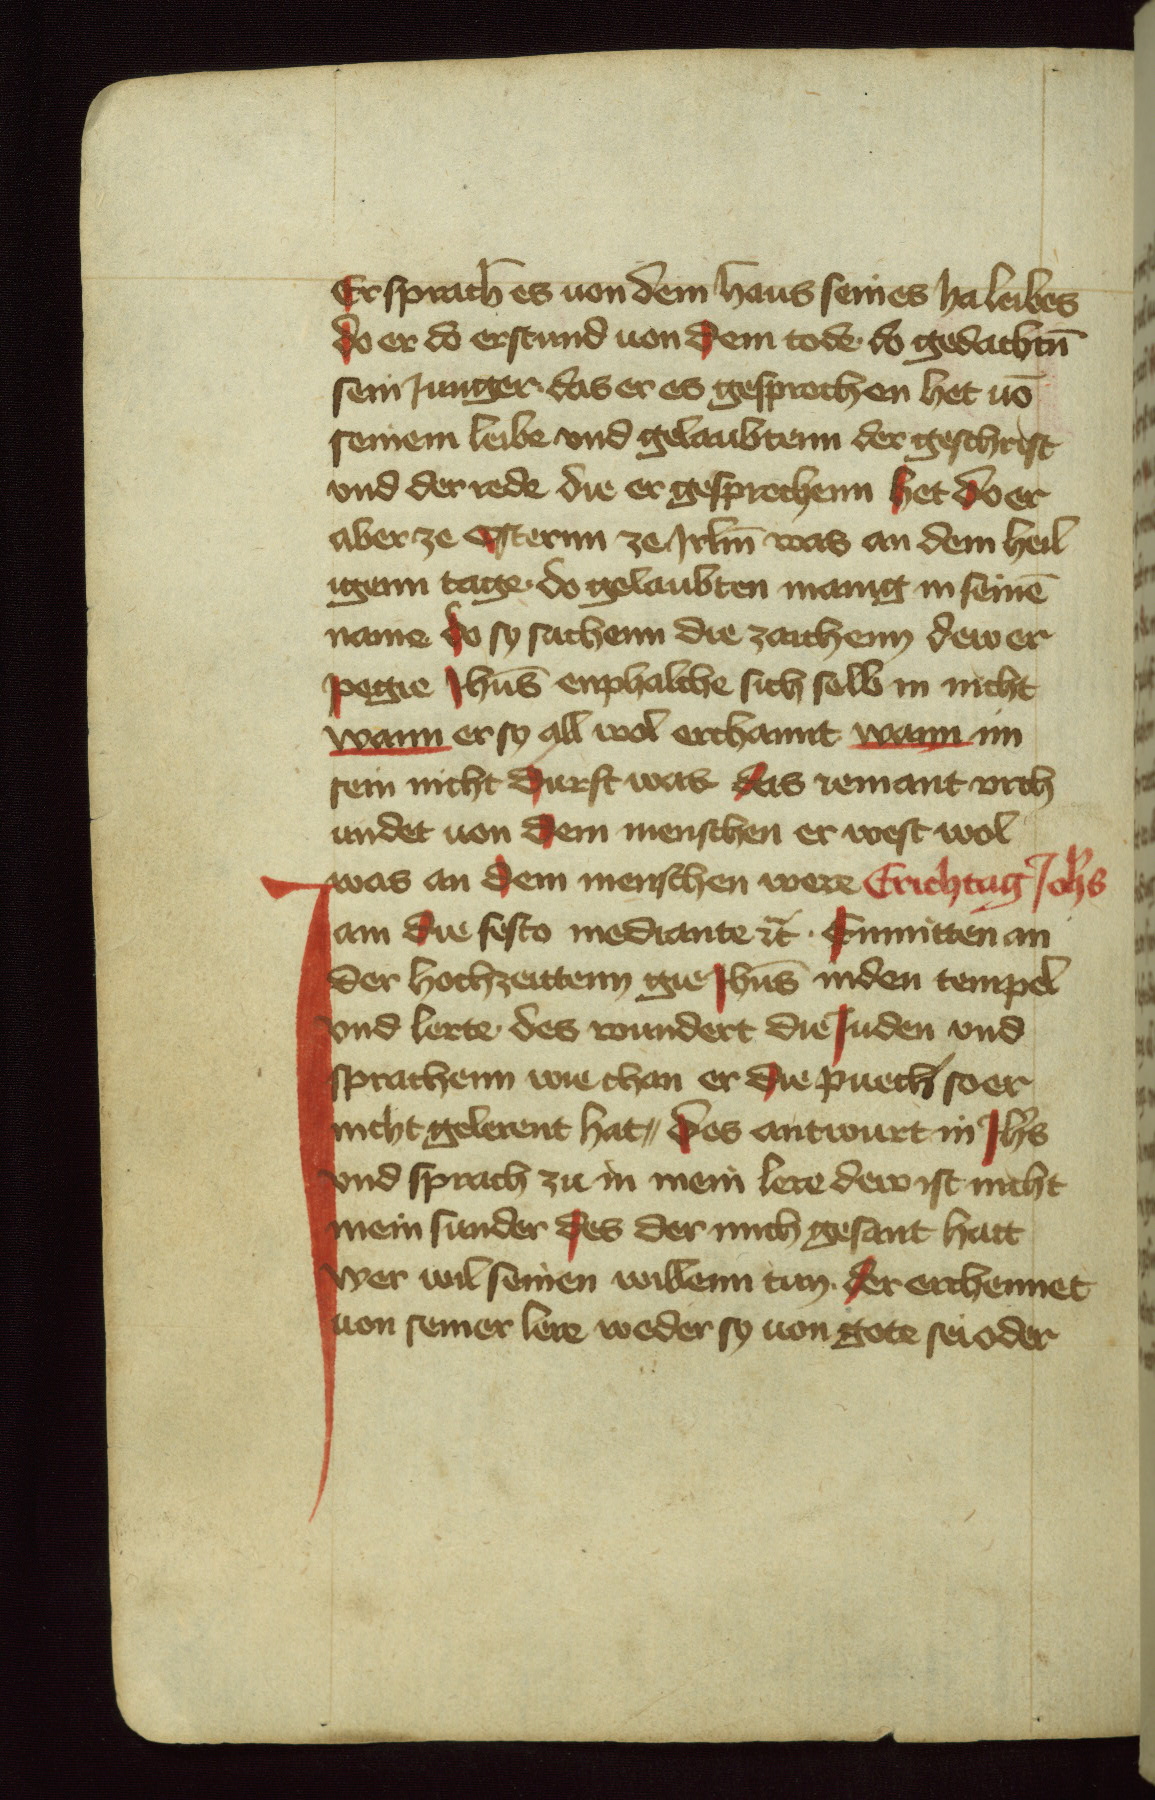 Er sprach es uon dem haus seines ha leibes
do er do erstund uon dem tode· do gedachtn̄
sein Junger· das er es gesprochen het uō
seinem leibe vnd gelaubtenn der geschrift
vnd der rede die er gesprechenn het do er
aber ze Osternn ze Jrlm̄ was an dem heil
igenn tage· do gelaubten manig in seinē
name do sy sachenn die zaichenn dew er
pegie Jhūs enphalche sich selb in nicht
wann er sy all wol erchannt wann im
sein nicht durft was das iemant vrch
undet uon dem menschen er west wol
was an dem menschen were Erichtag Johs
Jam die festo mediante ꝛc̄ · Enmitten an
der hochzeittenn gie Jhūs inden tempel
vnd lerte· des wundert die Juden vnd
sprachenn wie chan er die puech so er
nicht gelerent hat〃 des antwurt in Jhs
vnd sprach zu in mein lere dew ist nicht
mein sunder des der mich gesant hatt
wer wil seinen willenn tun· der erchennet
uon seiner lere weder sy uon gote sei oder